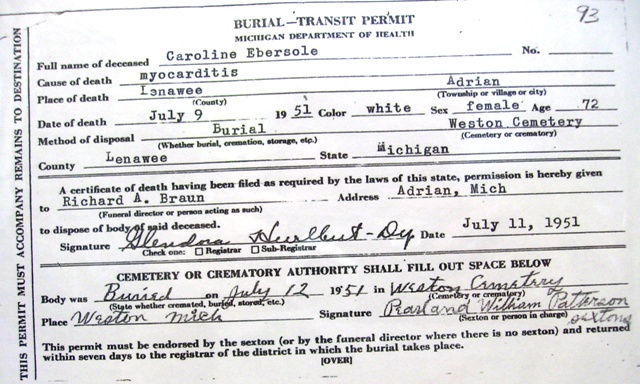 93
BURIAL—TRANSIT PERMIT
MICHIGAN DEPARTMENT OF HEALTH
Full name of deceased Caroline Ebersole No.
Cause of death myocarditis
Place of death Lenawee Adrian
(County) (Township or village or city)
Date of death July 9 1951 Color white Sex female Age 72
Method of disposal Burial Weston Cemetery
(Whether burial, cremation, storage, etc.) (Cemetery or crematory)
County Lenawee State Michigan
A certificate of death having been filed as required by the laws of this state, permission is hereby given
to Richard A. Braun Address Adrian, Mich
(Funeral director or person acting as such)
to dispose of body of said deceased.
Signature Glendora Hurlbut-Dep Date July 11, 1951
Check one: ☐ Registrar ☐ Sub-Registrar
CEMETERY OR CREMATORY AUTHORITY SHALL FILL OUT SPACE BELOW
Body was Buried on July 12 1951 in Weston Cemetery
(State whether cremated, buried, stored, etc.) (Cemetery or crematory)
Place Weston Mich Signature Pearl and William Patterson
(Sexton or person in charge) sextons
This permit must be endorsed by the sexton (or by the funeral director where there is no sexton) and returned
within seven days to the registrar of the district in which the burial takes place.
[OVER]
THIS PERMIT MUST ACCOMPANY REMAINS TO DESTINATION